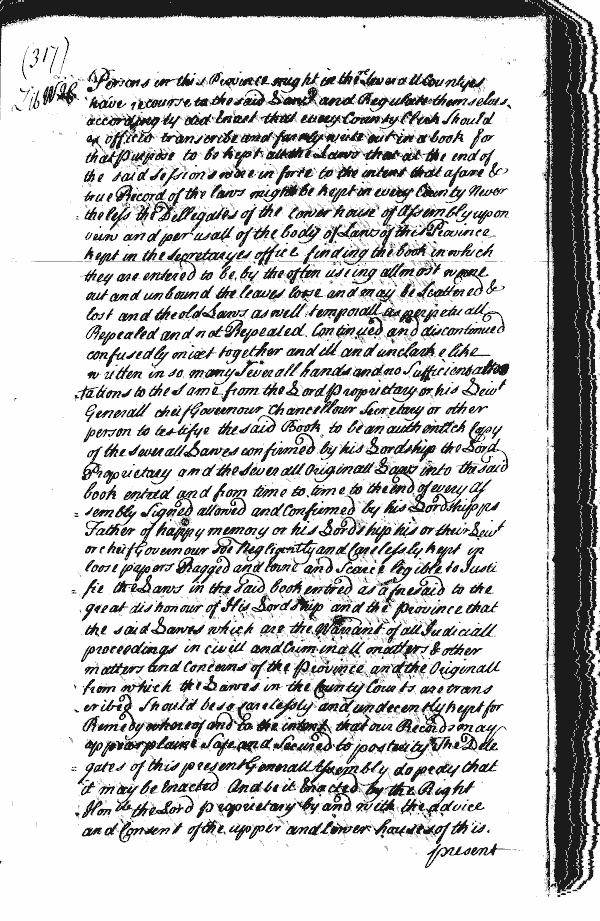 (317)
Lib W&C
Persons in this Province might in the Severall Countyes
have recourse to the said Laws and Regulate themselves
accordingly did Enact that every County Clerk should
ex officio transcribe and fairely write out in a book for
that Purpose to be kept all the Laws that at the end of
the said Sessions were in force to the intent that a faire &
true Record of the laws might be kept in every County Never
= the less the Dellegates of the lower house of Assembly upon
veiw and perusall of the body of Laws of this Province
kept in the Secretaryes office finding the book in which
they are entered to be by the often useing allmost worne
out and unbound the leaves loose and may be Scattered &
lost and the old Laws as well temporall as perpetuall
Repealed and not Repealed Continued and discontinued
confusedly mixt together and ill and unclarkelike
written in so many Severall hands and no Sufficient attes
=tations to the Same from the Lord Proprietary or his Lewt
Generall cheif Governour Chancellour Secretary or other
person to testifye the said Book to be an authentick Copy
of the Severall Lawes confirmed by his Lordship the Lord
Proprietary and the Severall Originall Laws into the said
book entred and from time to time to the end of every As
= sembly Signed allowed and Confirmed by his Lordshipps
Father of happy memory or his Lordship his or their Lewt
or cheif Governour Soe Negligently and Carelessly kept in
loose papers Ragged and torne and Scarce legible to Justi
= fie the Laws in the Said book entred as aforesaid to the
great dishonour of His Lordship and the Province that
the said Lawes which are the Warrant of all Judiciall
proceedings in civill and Criminall matters & other
matters and Concerns of the Province and the Originall
from which the Lawes in the County Courts are trans
=cribed Should be so carelessly and undecently kept for
Remedy whereof and to the intent that our Records may
appear plaine Safe and Secured to posterity The Dele
= gates of this present Generall Assembly do pray that
it may be Enacted And be it Enacted by the Right
Honble the Lord Proprietary by and with the advice
and Consent of the upper and lower houses of this
present